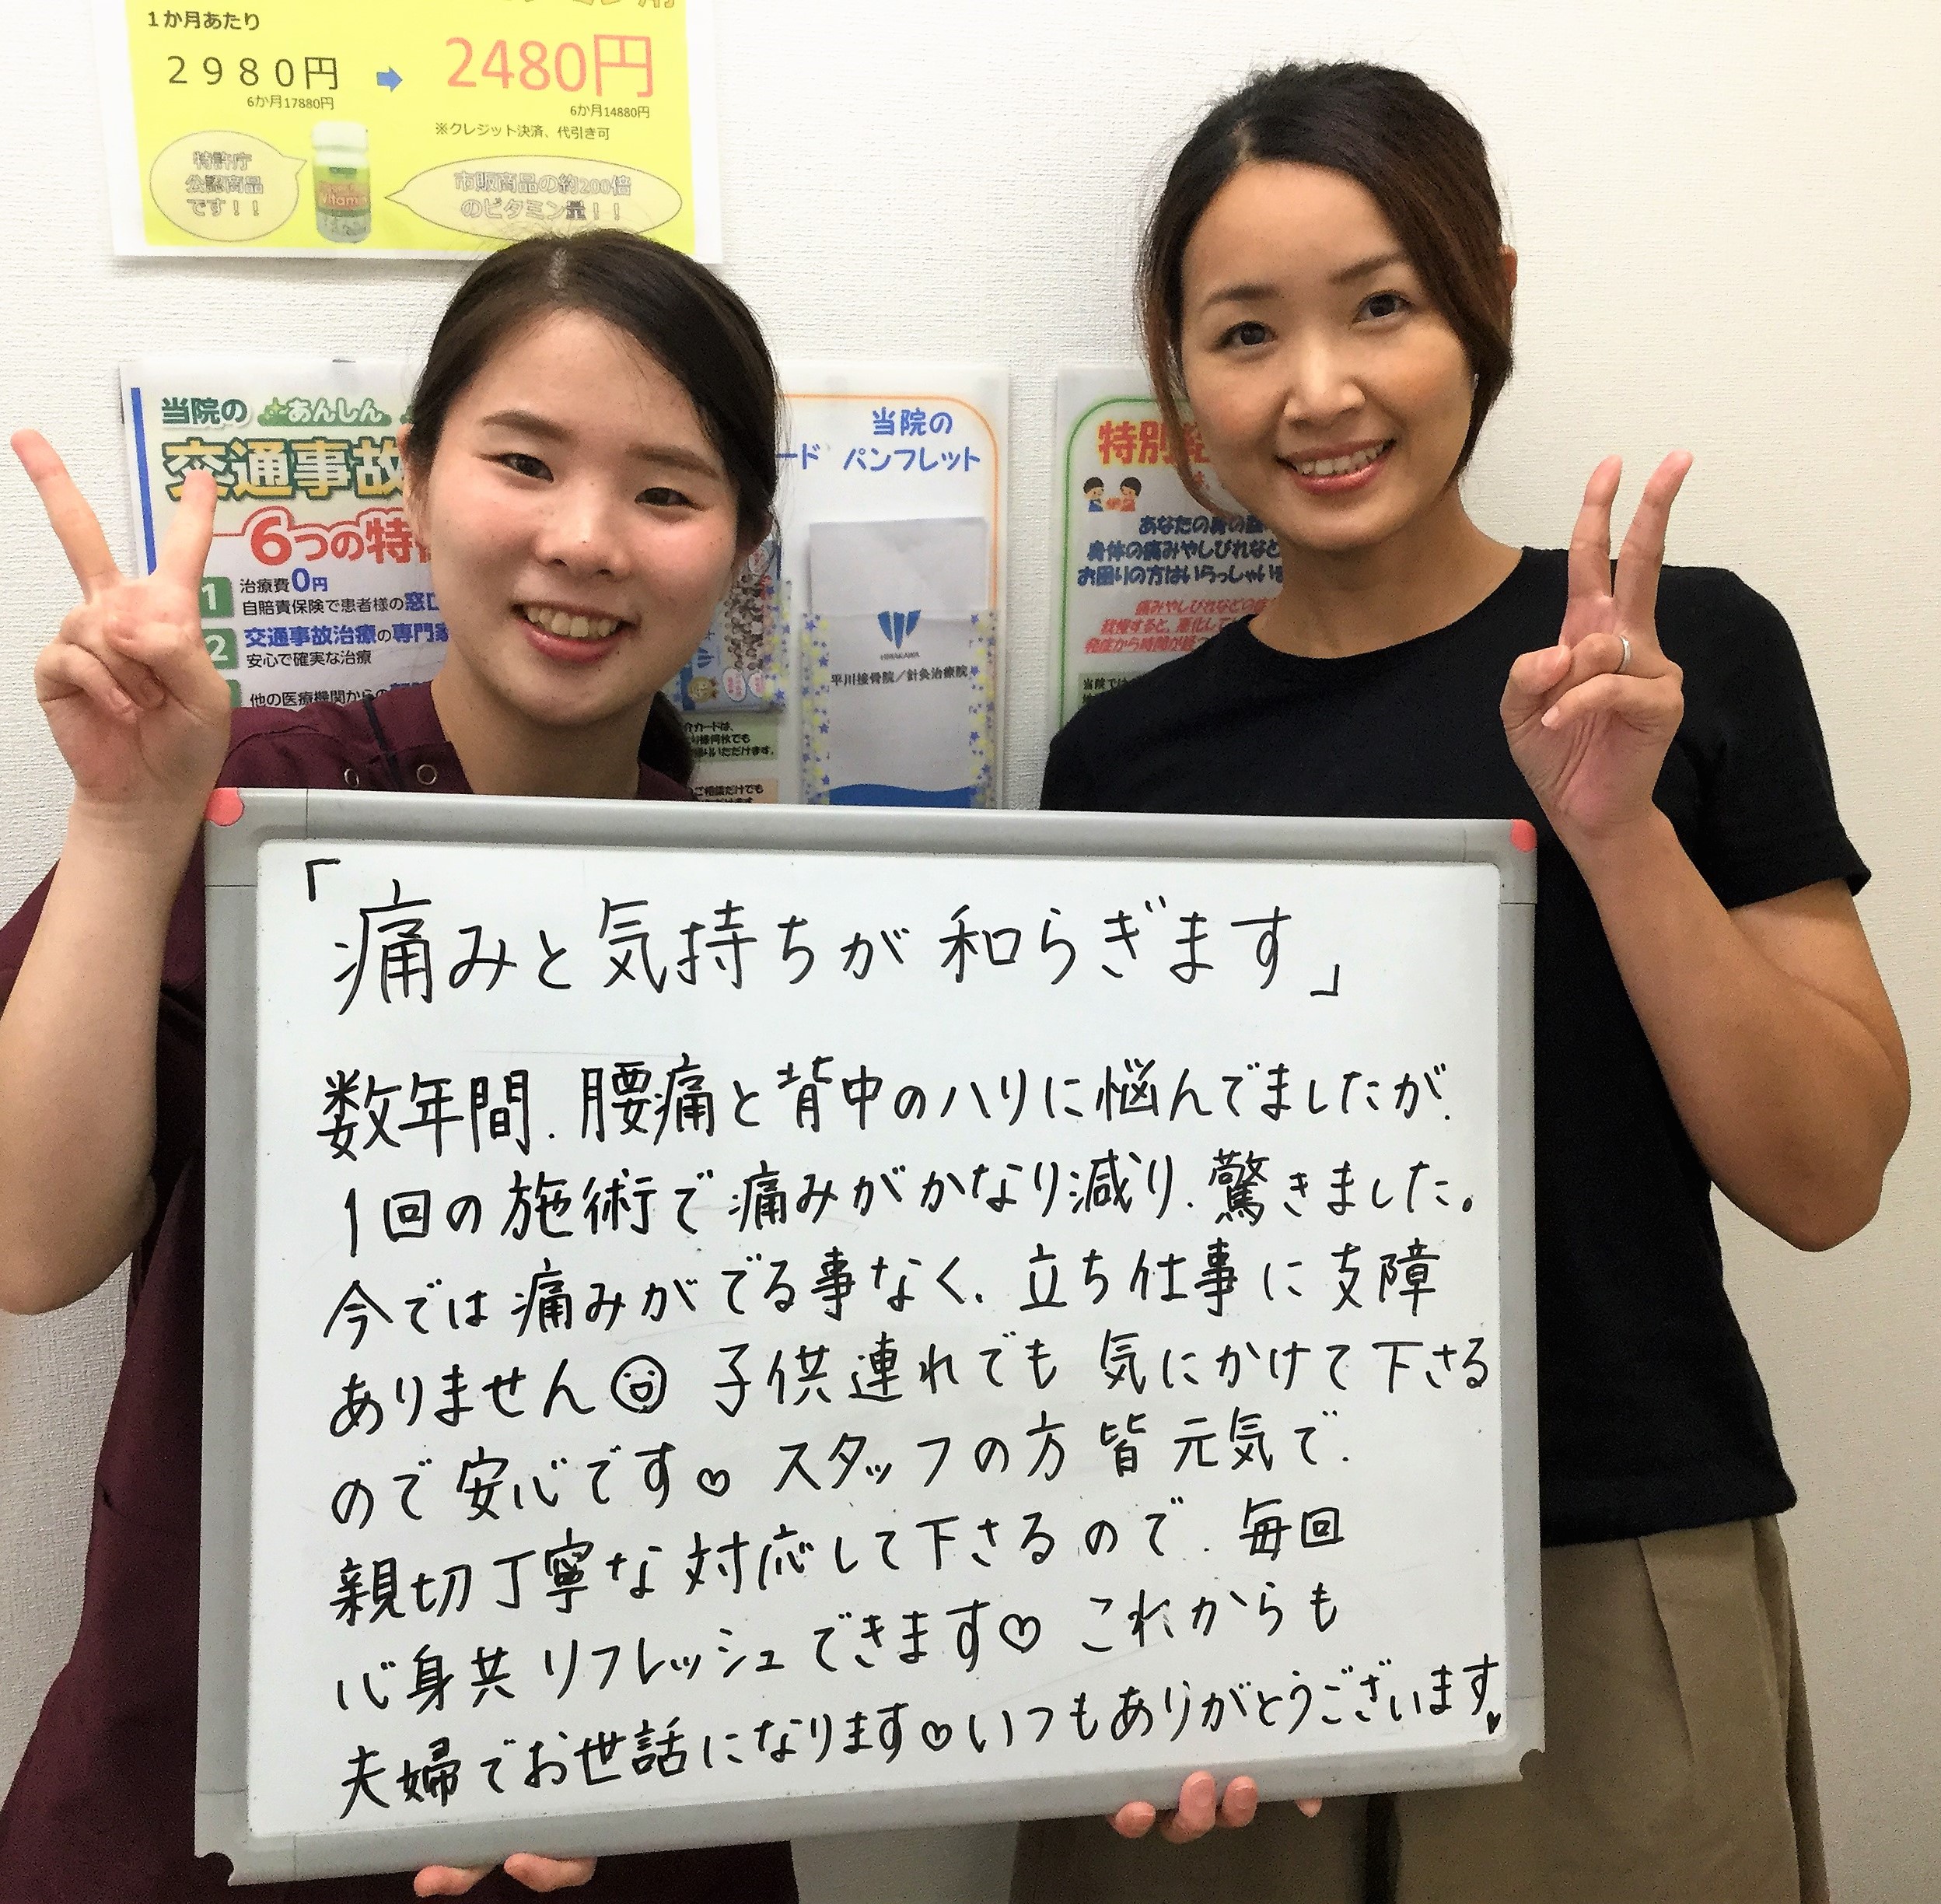 1か月あたり
2980円
2480円
6か月17880円
6か月14880円
※クレジット決済、代引き可
特許庁
公認商品
です！！
市販商品の約200倍
のビタミン量！！
当院の あんしん
交通事故
6つの特
1 治療費0円
自賠責保険で患者様の窓口
2 交通事故治療の専門家
安心で確実な治療
他の医療機関からの
ード
当院の
パンフレット
HIRAKAWA
平川接骨院／針灸治療院
特別
あなたの身の
身体の痛みやしびれなど
お困りの方はいらっしゃいま
痛みやしびれなどの症
我慢すると、悪化して
発症から時間が経
当院では
介カードは、
いただけます。
ご相談だけでも
「痛みと気持ちが和らぎます」
数年間、腰痛と背中のハリに悩んでましたが、
1回の施術で痛みがかなり減り、驚きました。
今では痛みがでる事なく、立ち仕事に支障
ありません 子供連れでも 気にかけて下さる
ので安心です♡ スタッフの方 皆 元気で、
親切丁寧な対応して下さるので、毎回
心身共リフレッシュできます♡ これからも
夫婦でお世話になります♡いつもありがとうございます♥